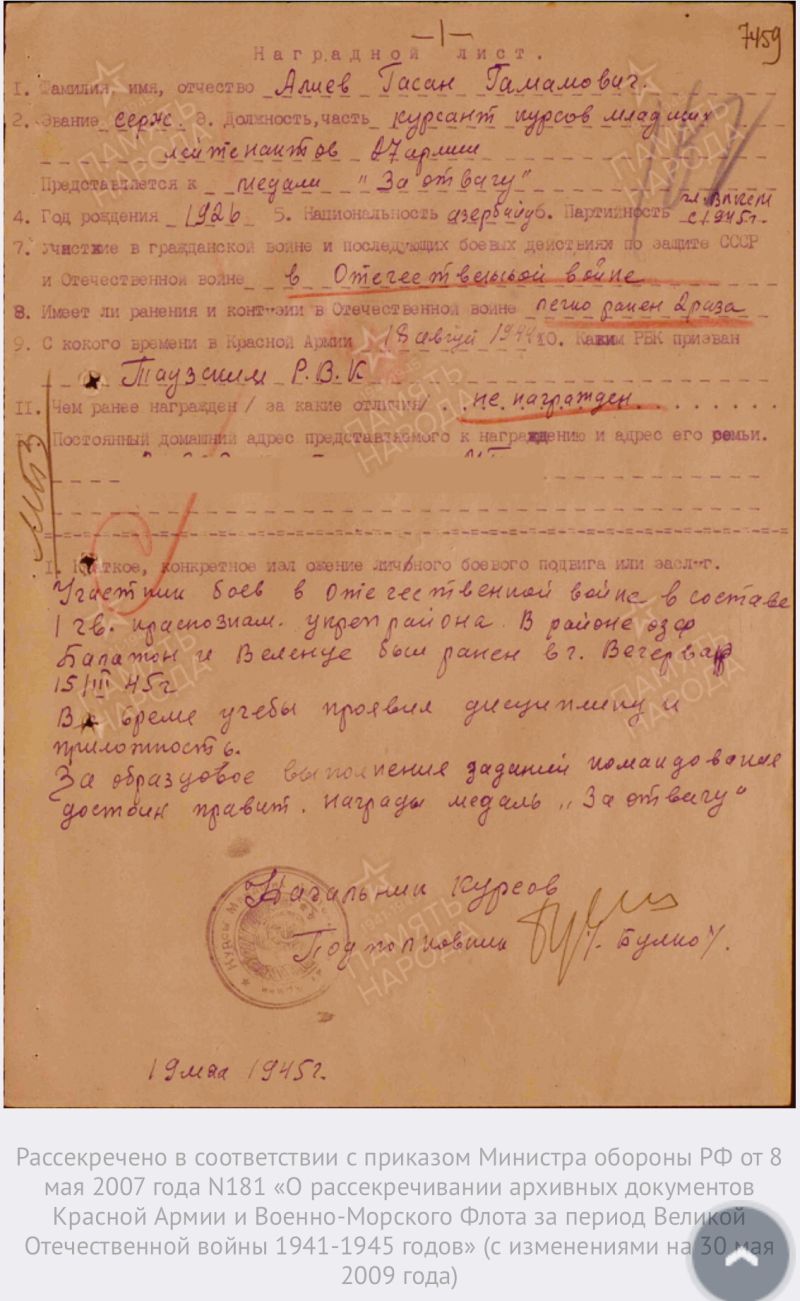 -1-
7459
Наградной лист.
1. Фамилия, имя, отчество Алиев Гасан Гамамович.
2. Звание серж. 3. Должность, часть курсант курсов младших
лейтенантов 27 армии
Представляется к медали "За отвагу"
4. Год рождения 1926 5. Национальность азербайд. 6. Партийность чл. ВЛКСМ с 1945 г.
7. Участие в гражданской войне и последующих боевых действиях по защите СССР
и Отечественной войне в Отечественной войне
8. Имеет ли ранения и контузии в Отечественной войне легко ранен 2 раза
9. С кокого времени в Красной Армии 18 август 1944 10. Каким РВК призван
Таузским Р.В.К
11. Чем ранее награжден /за какие отличия/ не награжден
Постоянный домашний адрес представляемого к награждению и адрес его семьи.
1. Краткое, конкретное изложение личного боевого подвига или заслуг.
Участник боев в Отечественной войне в составе
1 гв. краснознам. укреп района. В районе озер
Балатон и Веленце был ранен в г.
15/III 45г
Во время учебы проявил дисциплину и
приложность.
За образцовое выполнения заданий командование
достоин правит. награды медаль „За отвагу"
Начальник курсов
Подполковник /Булко/.
19 мая 1945 г.
ПАМЯТЬ НАРОДА
Рассекречено в соответствии с приказом Министра обороны РФ от 8
мая 2007 года N181 «О рассекречивании архивных документов
Красной Армии и Военно-Морского Флота за период Великой
Отечественной войны 1941-1945 годов» (с изменениями на 30 мая
2009 года)